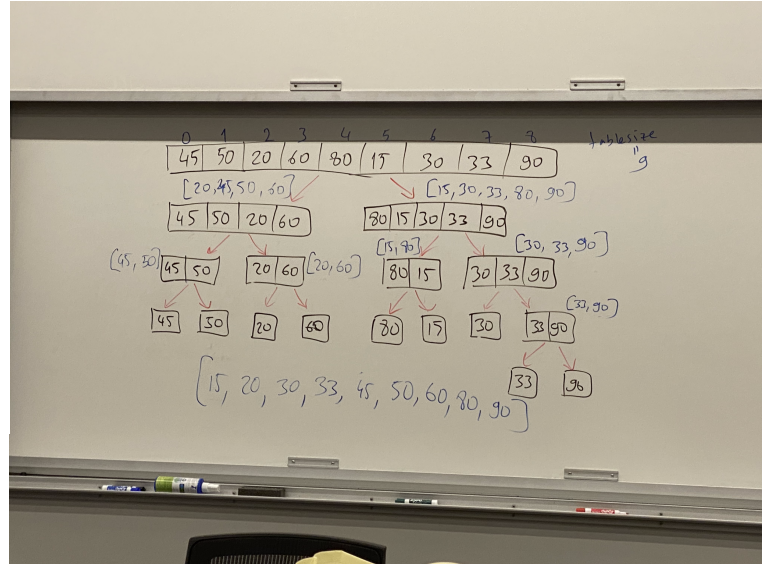 0 1 2 3 4 5 6 7 8 tablesize
45 50 20 60 80 15 30 33 90 = 9
[20,45,50,60] [15,30,33,80,90]
45 50 20 60 80 15 30 33 90
[45,50] 45 50 20 60 [20,60] [15,80] 80 15 [30,33,90] 30 33 90
45 50 20 60 80 15 30 33 90 [33,90]
33 90
[15, 20, 30, 33, 45, 50, 60, 80, 90]